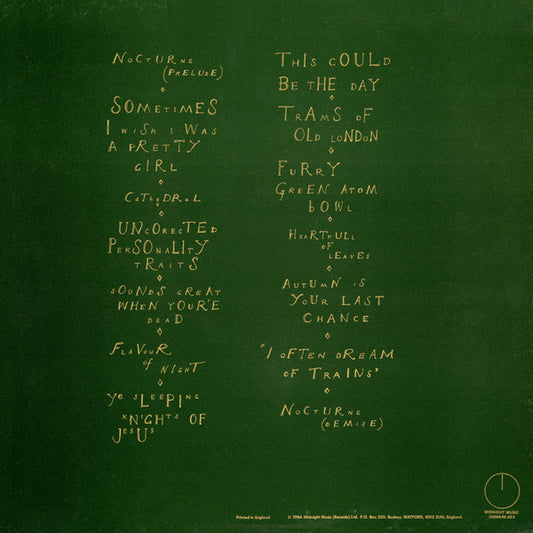 NOCTURNE
(PRELUDE)
SOMETIMES
I WISH I WAS
A PRETTY
GIRL
CATHEDRAL
UNCORECTED
PERSONALITY
TRAITS
SOUNDS GREAT
WHEN YOUR'E
DEAD
FLAVOUR
OF NIGHT
YE SLEEPING
KNIGHTS OF
JESUS
THIS COULD
BE THE DAY
TRAMS OF
OLD LONDON
FURRY
GREEN ATOM
BOWL
HEARTFULL
OF
LEAVES
AUTUMN IS
YOUR LAST
CHANCE
"I OFTEN DREAM
OF TRAINS"
NOCTURNE
(DEMISE)
MIDNIGHT MUSIC
CHIME 00.05 S
Printed in England
© 1984 Midnight Music (Records) Ltd. P.O. Box 333, Bushey, WATFORD, WD2 3UN, England.